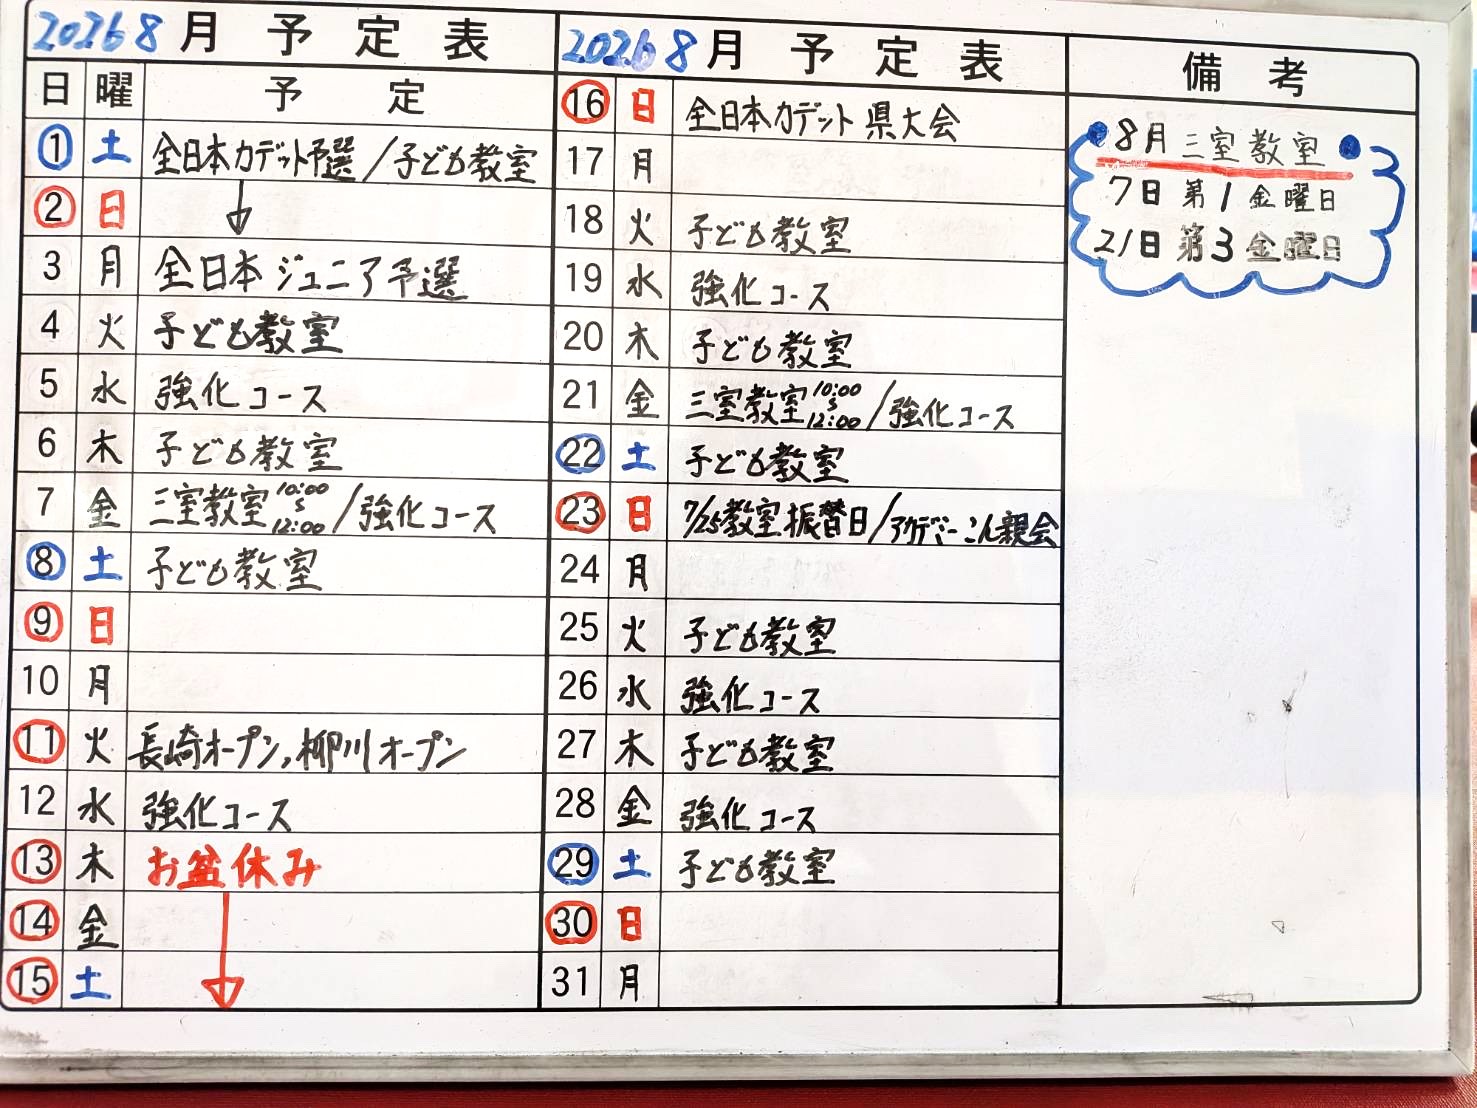 2026 8月 予定表
日 曜 予定
1 土 全日本カデット予選/子ども教室
2 日
3 月 全日本ジュニア予選
4 火 子ども教室
5 水 強化コース
6 木 子ども教室
7 金 三室教室 10:00〜12:00/強化コース
8 土 子ども教室
9 日
10 月
11 火 長崎オープン,柳川オープン
12 水 強化コース
13 木 お盆休み
14 金
15 土
2026 8月 予定表
16 日 全日本カデット県大会
17 月
18 火 子ども教室
19 水 強化コース
20 木 子ども教室
21 金 三室教室 10:00〜12:00/強化コース
22 土 子ども教室
23 日 7/25教室振替日/アカデミーこん親会
24 月
25 火 子ども教室
26 水 強化コース
27 木 子ども教室
28 金 強化コース
29 土 子ども教室
30 日
31 月
備考
8月三室教室
7日第1金曜日
21日第3金曜日